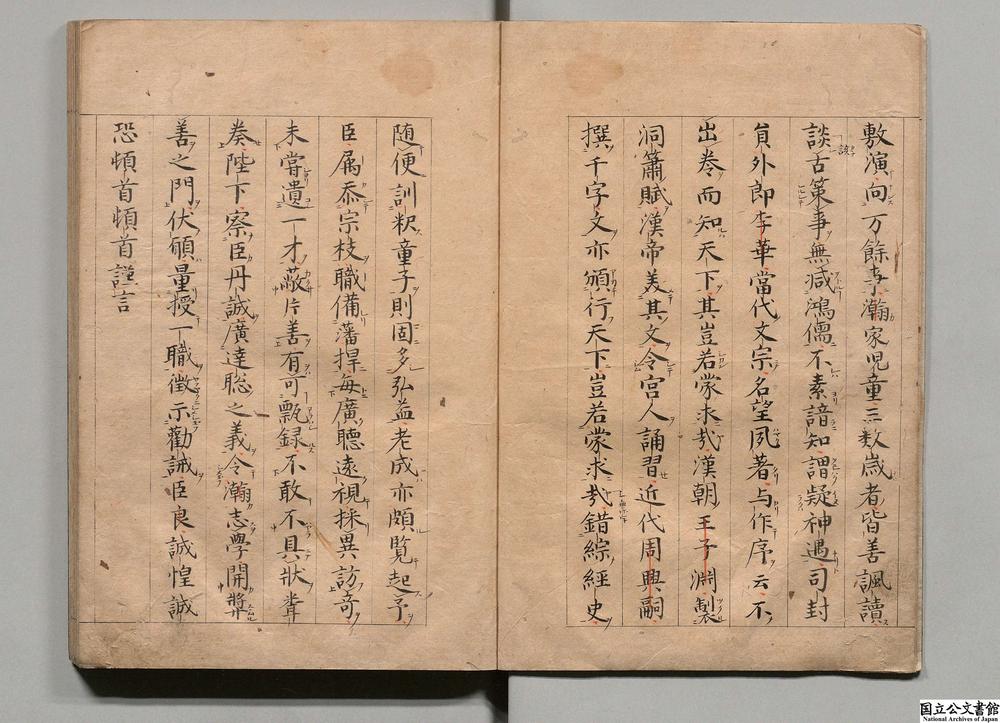 敷演向万餘事瀚家児童三数歳者皆善諷讀
談古策事無减鴻儒不素諳知謂疑神遇司封
貟外郎李華當代文宗名望夙著与作序云不
出巻而知天下其豈若蒙求㢤漢朝王子淵製
洞簫賦漢帝美其文令宮人誦習近代周興嗣
撰千字文亦頒行天下豈若蒙求㢤錯綜經史
随便訓釈童子則固多弘益老成亦頗覧起予
臣属忝宗枝職備藩捍毎廣聴遠視採異訪奇
未嘗遺一才蔽片善有可甄録不敢不具状聞
奏陛下察臣丹誠廣達聡之義令瀚志學開奨
善之門伏願量授一職徴示勸誡臣良誠惶誠
恐頓首頓首謹言
国立公文書館
National Archives of Japan